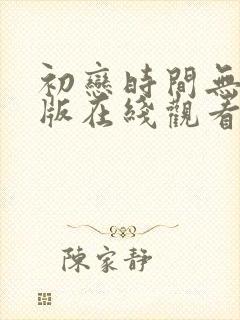 初戀時間無
版在綫觀看
陳家靜